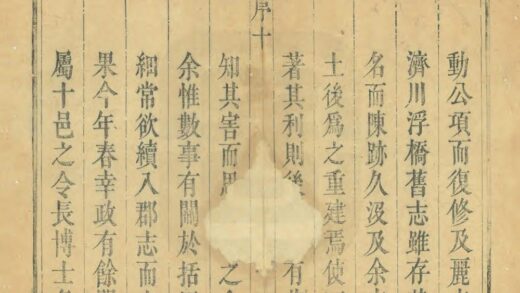 動公項而復修及麗
濟川浮橋舊志雖存
名而陳跡久汲及余
土後爲之重建焉使
著其利則後有
序十
知其害而思之
余惟數事有關於括
細常欲續入郡志而
果今年春幸政有餘
屬十邑之令長博士